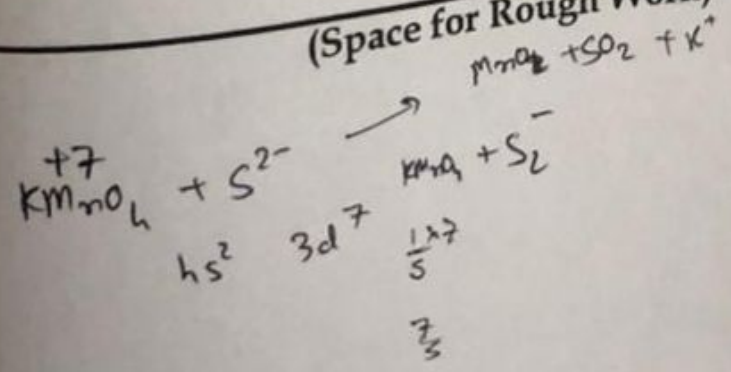 (Space for Rough
MnO2 + SO2 + K+
+7
KMnO4 + S2- → KMnO4 + S2-
4s2 3d7
1×7
5
7
5